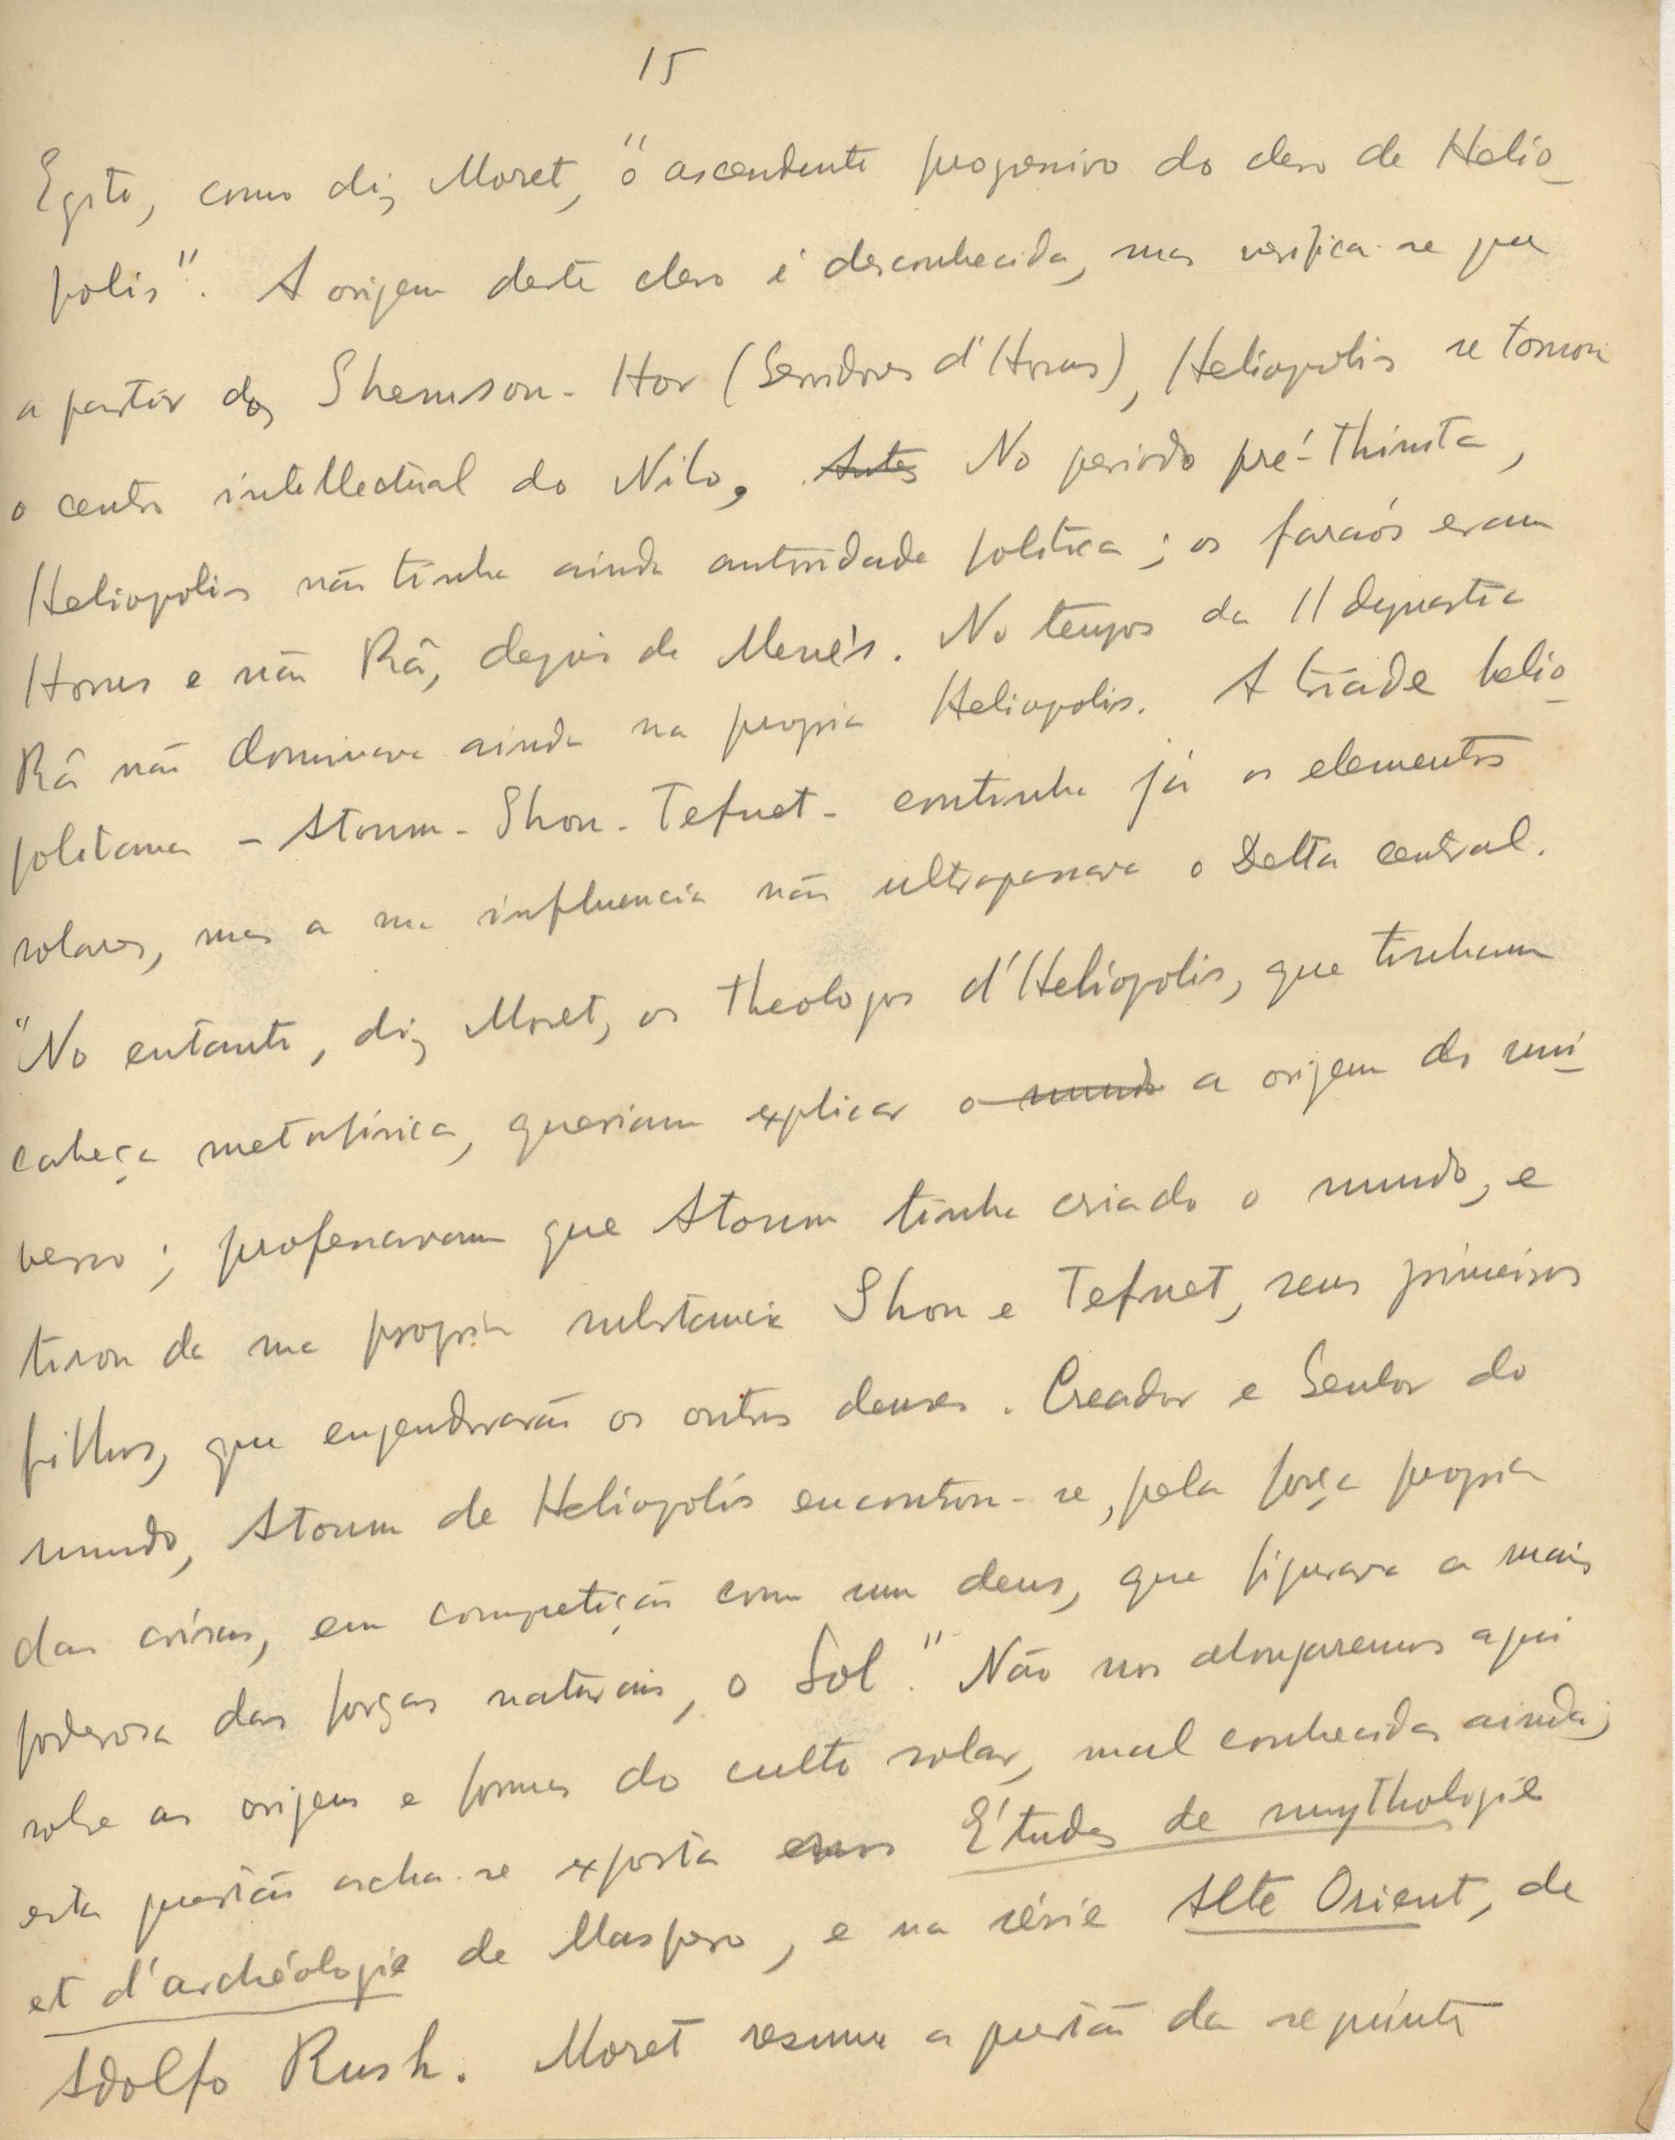 15
Egito, como diz Moret, "o ascendente progressivo do clero de Helio-
polis". A origem deste clero é desconhecida, mas verifica-se que
a partir dos Shemsou-Hor (Servidores d'Horus), Heliopolis se tornou
o centro intellectual do Nilo. Antes No periodo pré-thinita,
Heliopolis não tinha ainda autoridade politica; os faraós eram
Horus e não Râ, depois de Menés. No tempos da II dynastia
Râ não dominava ainda na propria Heliopolis. A tríade helio-
politana - Atoum - Shou - Tefnet - continha já os elementos
solares, mas a sua influencia não ultrapassava o Delta central.
"No entanto, diz Moret, os theologos d'Heliópolis, que tinham
cabeça metafísica, queriam explicar o mundo a origem do uni-
verso; professavam que Atoum tinha criado o mundo, e
tirou da sua propria substancia Shou e Tefnet, seus primeiros
filhos, que engendrarão os outros deuses. Creador e Senhor do
mundo, Atoum de Heliopolis encontrou-se, pela força propria
das coisas, em competição com um deus, que figurava a mais
poderosa das forças naturais, o Sol." Não nos alongaremos aqui
sobre as origens e formas do culto solar, mal conhecidas ainda;
esta questão acha-se exposta nos Études de mythologie
et d'archéologie de Maspero, e na série Alte Orient, de
Adolfo Rush. Moret resume a questão da seguinte